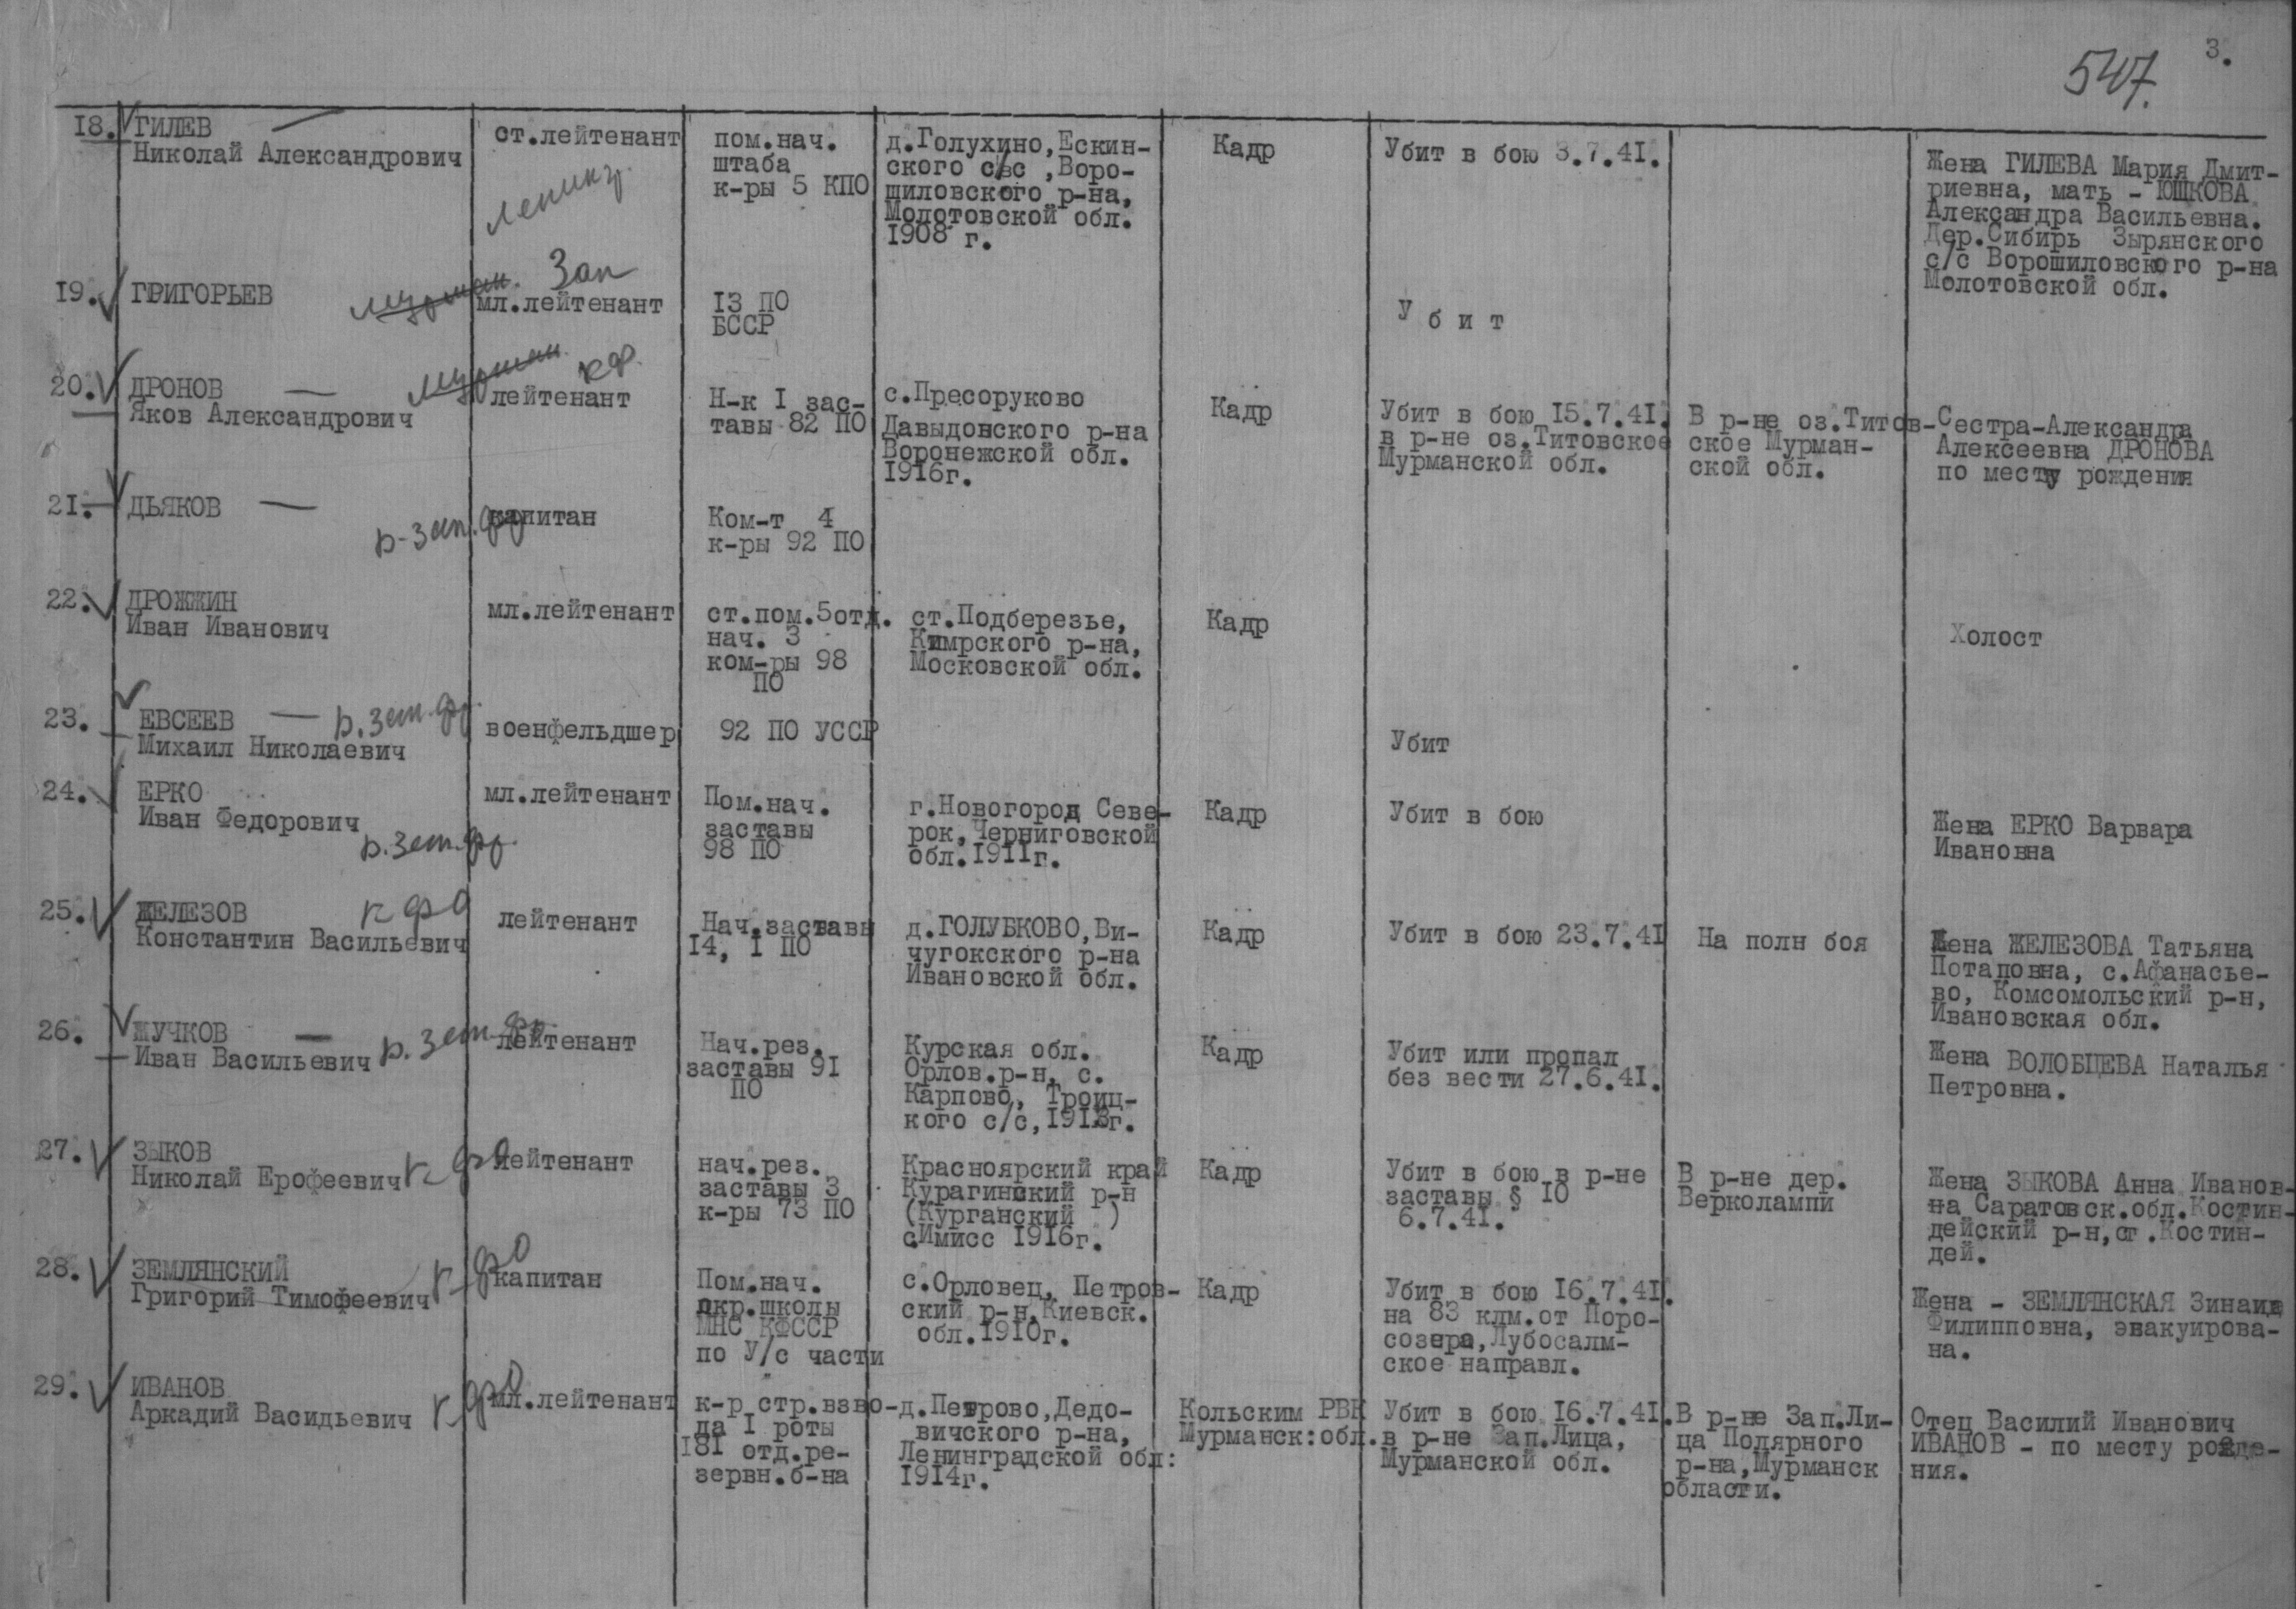 547.
3.
18. ГИЛЕВ
Николай Александрович
ст.лейтенант
пом.нач.
штаба
к-ры 5 КПО
д.Голухино,Ескин-
ского с/с ,Воро-
шиловского р-на,
Молотовской обл.
1908 г.
Кадр
Убит в бою 3.7.41.
Жена ГИЛЕВА Мария Дмит-
риевна, мать - ЮШКОВА
Александра Васильевна.
Дер.Сибирь Зырянского
с/с Ворошиловского р-на
Молотовской обл.
19. ГРИГОРЬЕВ
мурман. Зап
мл.лейтенант
13 ПО
БССР
У б и т
20. ДРОНОВ
Яков Александрович
мурман
лейтенант
Н-к I зас-
тавы 82 ПО
с.Пресоруково
Давыдовского р-на
Воронежской обл.
1916г.
Кадр
Убит в бою 15.7.41.
в р-не оз.Титовское
Мурманской обл.
В р-не оз.Титов-
ское Мурман-
ской обл.
Сестра-Александра
Алексеевна ДРОНОВА
по месту рождения
21. ДЬЯКОВ
капитан
Ком-т 4
к-ры 92 ПО
22. ДРОЖЖИН
Иван Иванович
мл.лейтенант
ст.пом.5отд.
нач. 3
ком-ры 98
ПО
ст.Подберезье,
Кимрского р-на,
Московской обл.
Кадр
Холост
23. ЕВСЕЕВ
Михаил Николаевич
военфельдшер
92 ПО УССР
Убит
24. ЕРКО
Иван Федорович
мл.лейтенант
Пом.нач.
заставы
98 ПО
г.Новогород Севе-
рок,Черниговской
обл.1911г.
Кадр
Убит в бою
Жена ЕРКО Варвара
Ивановна
25. ЖЕЛЕЗОВ
Константин Васильевич
кфо
лейтенант
Нач.заставы
14, I ПО
д.ГОЛУБКОВО,Ви-
чугокского р-на
Ивановской обл.
Кадр
Убит в бою 23.7.41
На полн боя
Жена ЖЕЛЕЗОВА Татьяна
Потаповна, с.Афанасье-
во, Комсомольский р-н,
Ивановская обл.
26. ЖУЧКОВ
Иван Васильевич
лейтенант
Нач.рез.
заставы 91
ПО
Курская обл.
Орлов.р-н, с.
Карпово, Троиц-
кого с/с,1913г.
Кадр
Убит или пропал
без вести 27.6.41.
Жена ВОЛОБЦЕВА Наталья
Петровна.
27. ЗЫКОВ
Николай Ерофеевич
кфо
лейтенант
нач.рез.
заставы 3
к-ры 73 ПО
Красноярский край
Курагинский р-н
(Курганский )
с.Имисс 1916г.
Кадр
Убит в бою в р-не
заставы § 10
6.7.41.
В р-не дер.
Верколампи
Жена ЗЫКОВА Анна Иванов-
на Саратовск.обл.Костин-
дейский р-н,ст.Костин-
дей.
28. ЗЕМЛЯНСКИЙ
Григорий Тимофеевич
кфо
капитан
Пом.нач.
окр.школы
МНС КФССР
по У/с части
с.Орловец, Петров-
ский р-н,Киевск.
обл.1910г.
Кадр
Убит в бою 16.7.41.
на 83 клм.от Поро-
созера,Лубосалм-
ское направл.
Жена - ЗЕМЛЯНСКАЯ Зинаида
Филипповна, эвакуирова-
на.
29. ИВАНОВ
Аркадий Васидьевич
кфо
мл.лейтенант
к-р стр.взво-
да I роты
181 отд.ре-
зервн.б-на
д.Петрово,Дедо-
вичского р-на,
Ленинградской обл:
1914г.
Кольским РВК
Мурманск:обл.
Убит в бою 16.7.41.
в р-не Зап.Лица,
Мурманской обл.
В р-не Зап.Ли-
ца Полярного
р-на,Мурманск
области.
Отец Василий Иванович
ИВАНОВ - по месту рожде-
ния.